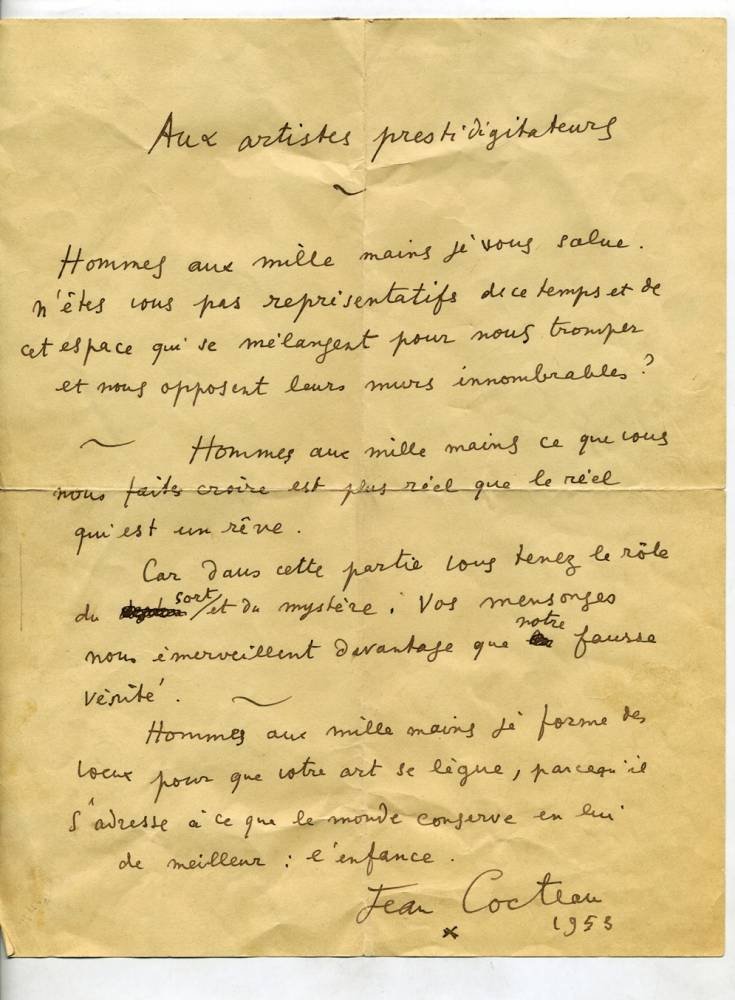 Aux artistes prestidigitateurs
Hommes aux mille mains je vous salue.
N'êtes vous pas représentatifs de ce temps et de
cet espace qui se mélangent pour nous tromper
et nous opposent leurs murs innombrables ?
Hommes aux mille mains ce que vous
nous faites croire est plus réel que le réel
qui est un rêve.
Car dans cette partie vous tenez le rôle
du sort/et du mystère. Vos mensonges
nous émerveillent davantage que notre fausse
vérité.
Hommes aux mille mains je forme des
voeux pour que votre art se lègue, parcequ'il
s'adresse à ce que le monde conserve en lui
de meilleur : l'enfance.
Jean Cocteau
1953